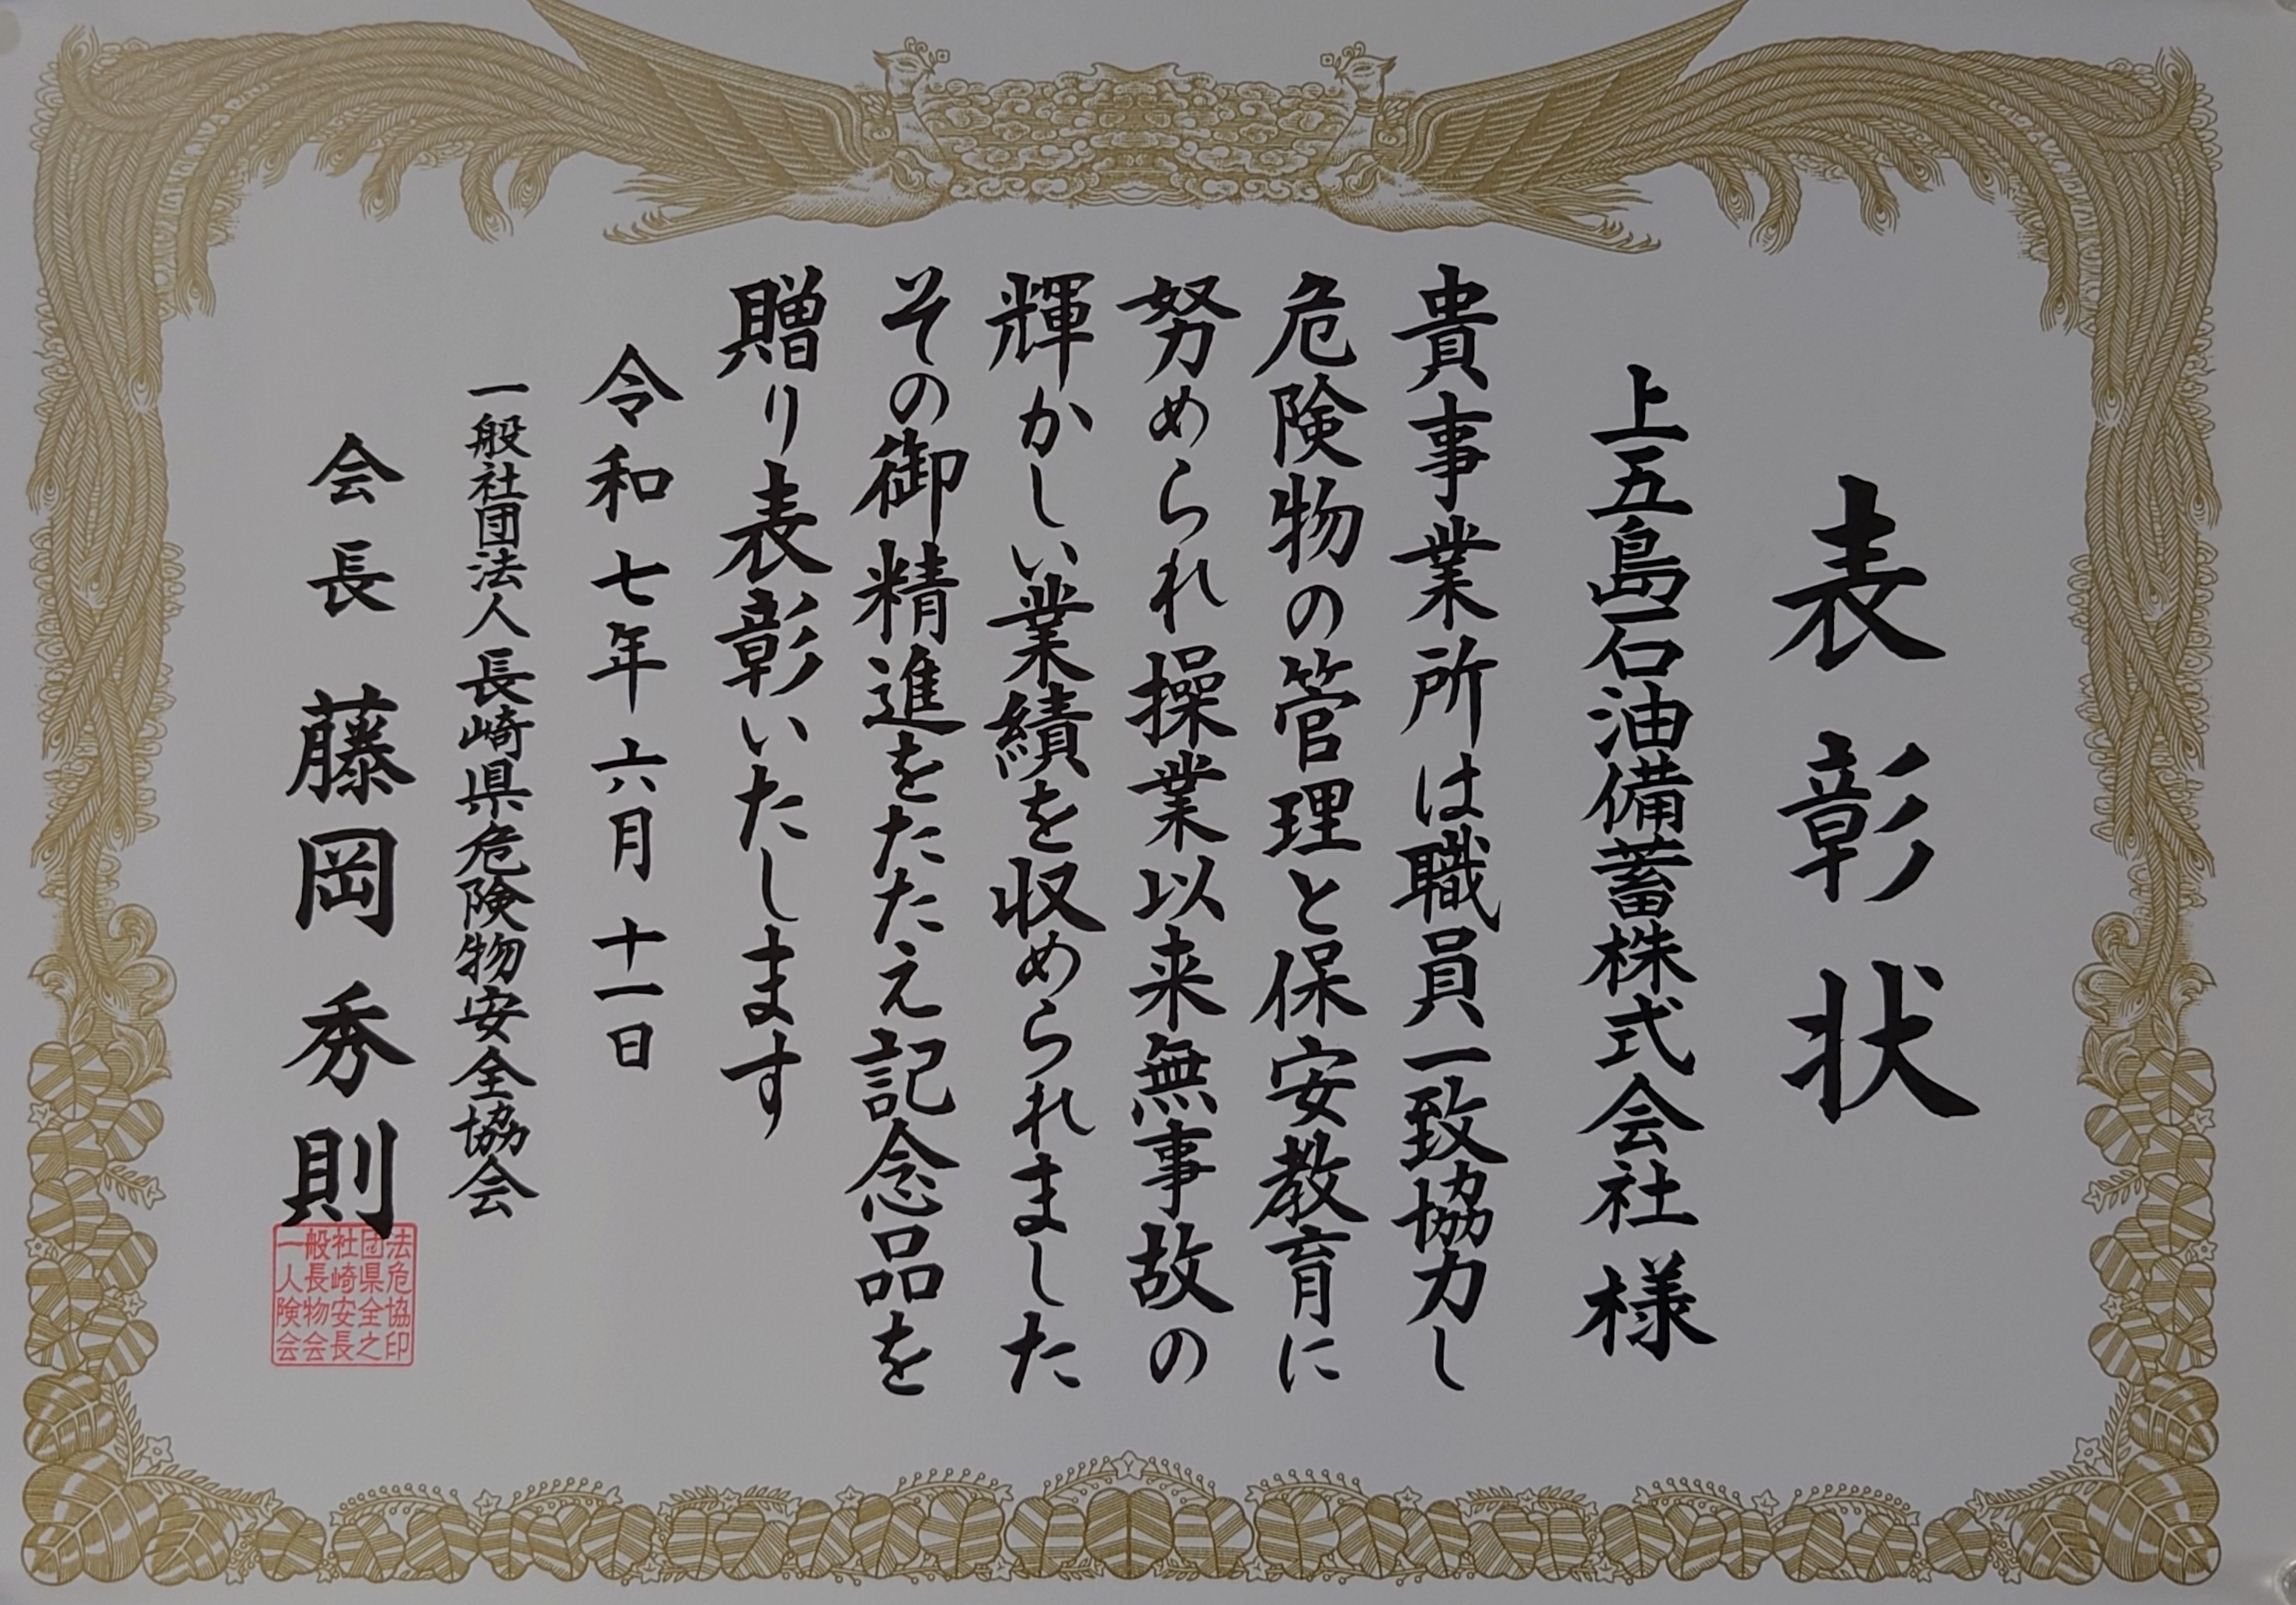 表彰状
上五島石油備蓄株式会社 様
貴事業所は職員一致協力し
危険物の管理と保安教育に
努められ操業以来無事故の
輝かしい業績を収められました
その御精進をたたえ記念品を
贈り表彰いたします
令和七年六月十一日
一般社団法人 長崎県危険物安全協会
会長 藤岡秀則
一般社団法
人長崎県危
険物安全協
会会長之印